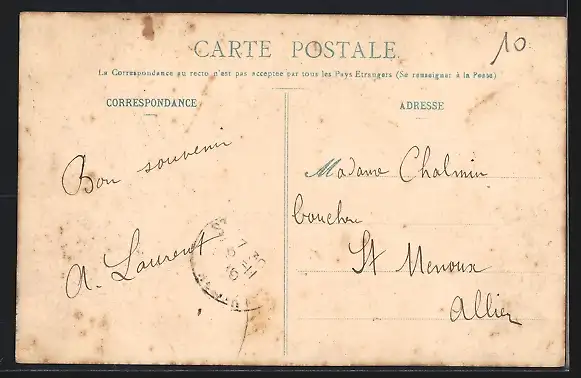 CARTE POSTALE
10
La Correspondance au recto n'est pas acceptée par tous les Pays Etrangers (Se renseigner à la Poste)
CORRESPONDANCE
ADRESSE
Bon souvenir
A. Laurent
Madame Chalmin
boucher
St Menoux
Allier